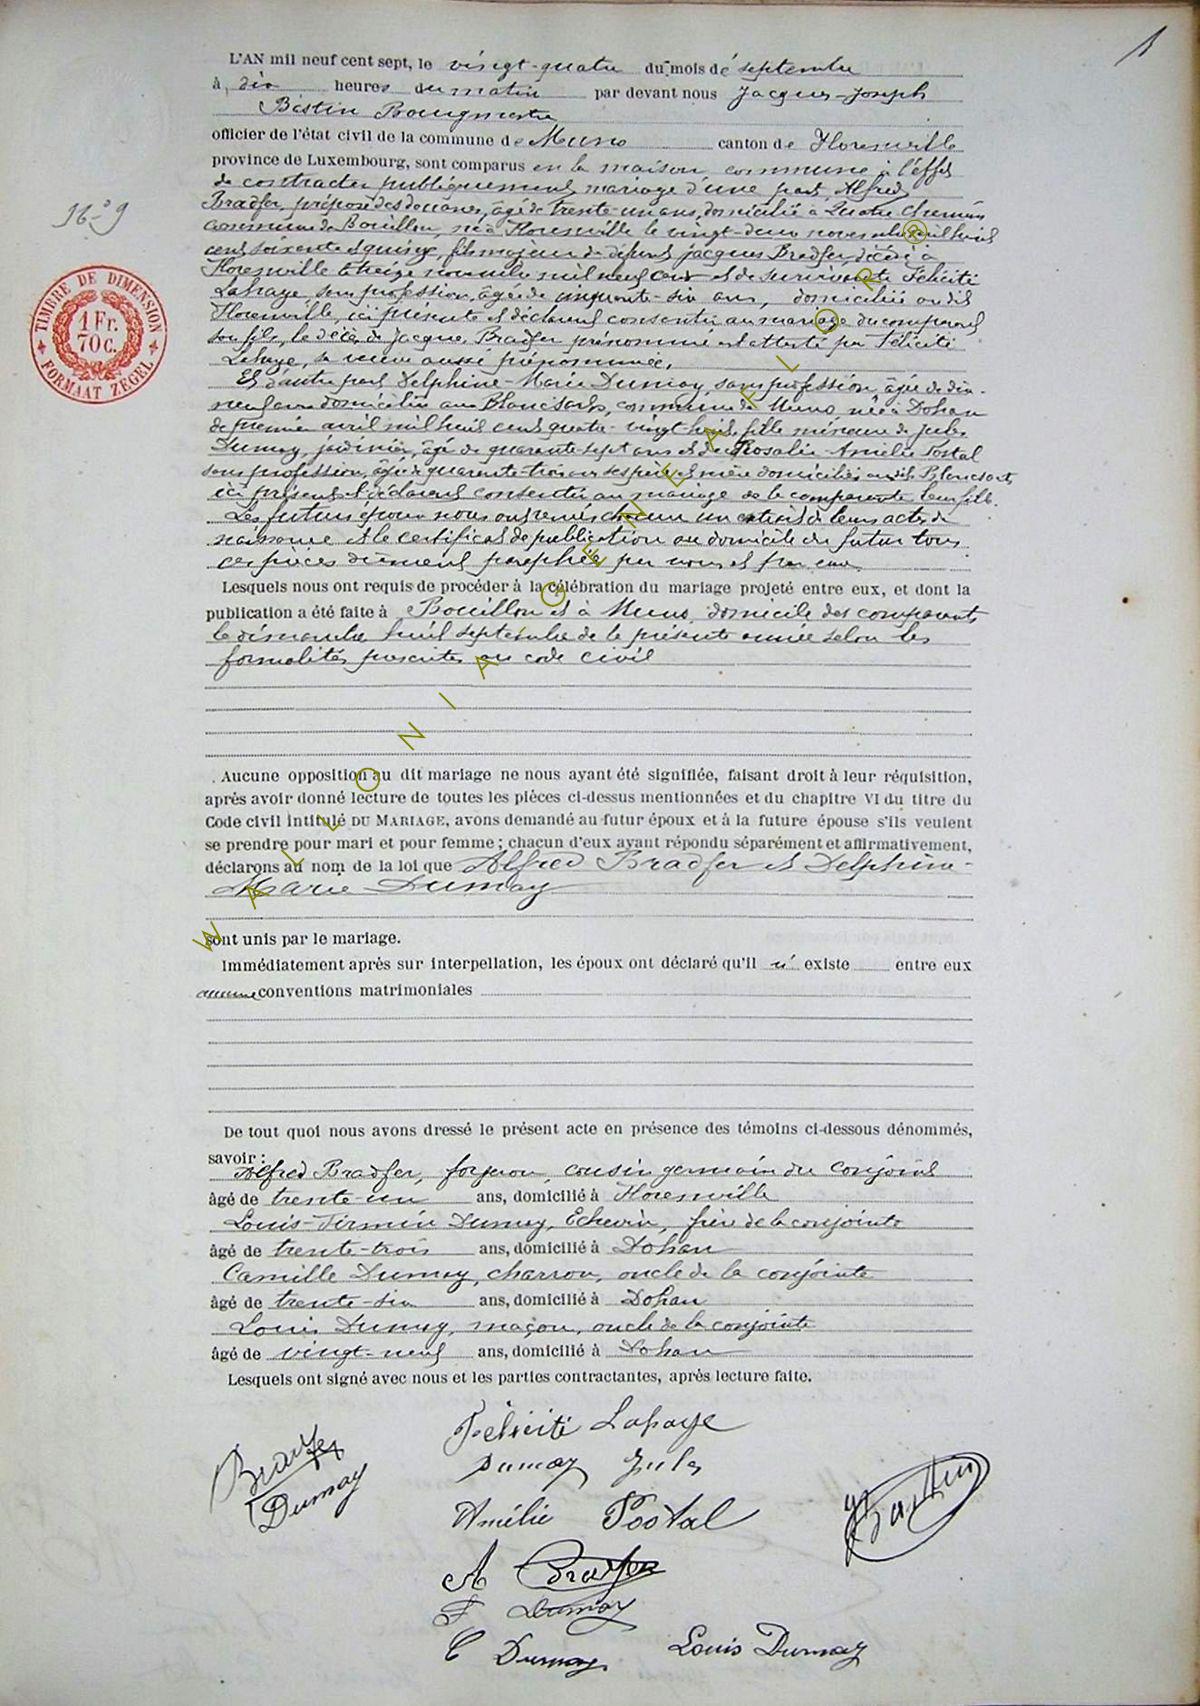 1
L'AN mil neuf cent sept, le vingt-quatre du mois de septembre
à dix heures du matin par devant nous Jacques-Joseph
Bestin Bourgmestre
officier de l'état civil de la commune de Muno canton de Florenville
province de Luxembourg, sont comparus en la maison commune à l'effet
de contracter publiquement mariage d'une part, Alfred
Bradfer, préposé des douanes, âgé de trente-un ans, domicilié à Quatre Chemins
commune de Bouillon, né à Florenville le vingt-deux novembre mil huit
cent soixante et quinze, fils majeur de défunt Jacques Bradfer décédé à
Florenville le treize novembre mil neuf cent et de survivante Félicité
Lahaye, sans profession, âgée de cinquante-six ans, domiciliée au dit
Florenville, ici présente et déclarant consentir au mariage du comparant
son fils, le décès de Jacques Bradfer prénommé est attesté par Félicité
Lahaye, sa veuve aussi prénommée.
Et d'autre part Delphine-Marie Dumay, sans profession, âgée de dix-
neuf ans domiciliée aux Blancsarts, commune de Muno, née à Dohan
le premier avril mil huit cent quatre-vingt-huit, fille mineure de Jules
Dumay, jardinier, âgé de quarante sept ans et de Rosalie Amélie Postal
sans profession, âgée de quarante-trois ans ses père et mère domiciliés au dit Blancsart,
ici présents et déclarant consentir au mariage de la comparante leur fille.
Les futurs époux nous ont remis chacun un extrait de leurs actes de
naissance et le certificat de publication au domicile du futur tous
ces pièces dûment paraphées par nous et par eux
Lesquels nous ont requis de procéder à la célébration du mariage projeté entre eux, et dont la
publication a été faite à Bouillon et à Muno, domicile des comparants
le dimanche huit septembre de la présente année selon les
formalités prescrites au code civil
Aucune opposition au dit mariage ne nous ayant été signifiée, faisant droit à leur réquisition,
après avoir donné lecture de toutes les pièces ci-dessus mentionnées et du chapitre VI du titre du
Code civil intitulé DU MARIAGE, avons demandé au futur époux et à la future épouse s'ils veulent
se prendre pour mari et pour femme ; chacun d'eux ayant répondu séparément et affirmativement,
déclarons au nom de la loi que Alfred Bradfer et Delphine-
Marie Dumay
sont unis par le mariage.
Immédiatement après sur interpellation, les époux ont déclaré qu'il n' existe entre eux
aucune conventions matrimoniales
De tout quoi nous avons dressé le présent acte en présence des témoins ci-dessous dénommés,
savoir :
Alfred Bradfer, forgeron, cousin germain du conjoint
âgé de trente-un ans, domicilié à Florenville
Louis-Firmin Dumay, Echevin, frère de la conjointe
âgé de trente-trois ans, domicilié à Dohan
Camille Dumay, charron, oncle de la conjointe
âgé de trente-six ans, domicilié à Dohan
Louis Dumay, maçon, oncle de la conjointe
âgé de vingt-neuf ans, domicilié à Dohan
Lesquels ont signé avec nous et les parties contractantes, après lecture faite.
Félicité Lahaye
Bradfer
Dumay Jules
Dumay
Amélie Postal
A Bradfer
F Dumay
C Dumay Louis Dumay
TIMBRE DE DIMENSION
1 Fr.
70 C.
FORMAAT ZEGEL
WALLONIA GENEAFLOR ®